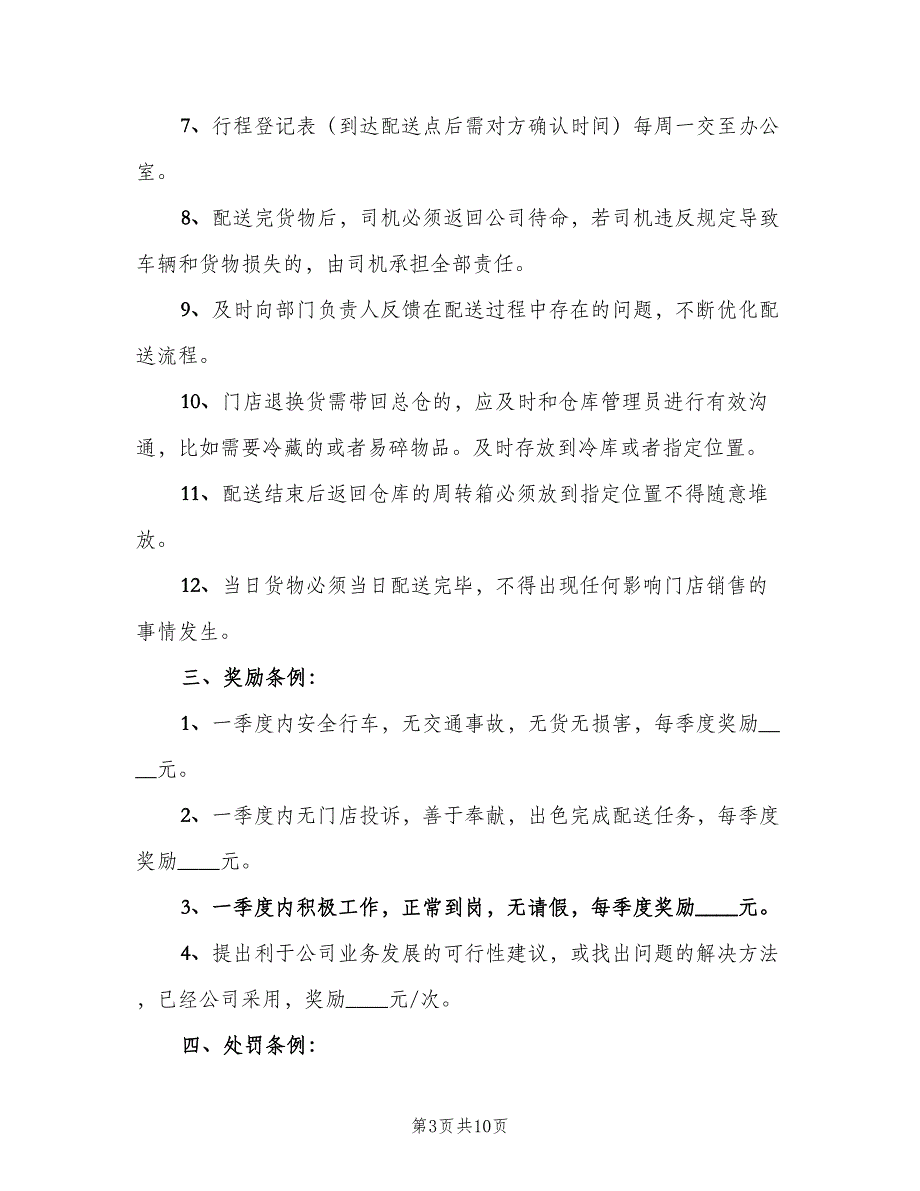 7、行程登记表（到达配送点后需对方确认时间）每周一交至办公
室。
8、配送完货物后，司机必须返回公司待命，若司机违反规定导致
车辆和货物损失的，由司机承担全部责任。
9、及时向部门负责人反馈在配送过程中存在的问题，不断优化配
送流程。
10、门店退换货需带回总仓的，应及时和仓库管理员进行有效沟
通，比如需要冷藏的或者易碎物品。及时存放到冷库或者指定位置。
11、配送结束后返回仓库的周转箱必须放到指定位置不得随意堆
放。
12、当日货物必须当日配送完毕，不得出现任何影响门店销售的
事情发生。
三、奖励条例：
1、一季度内安全行车，无交通事故，无货无损害，每季度奖励__
__元。
2、一季度内无门店投诉，善于奉献，出色完成配送任务，每季度
奖励____元。
3、一季度内积极工作，正常到岗，无请假，每季度奖励____元。
4、提出利于公司业务发展的可行性建议，或找出问题的解决方法
，已经公司采用，奖励____元/次。
四、处罚条例：
第3页共10页